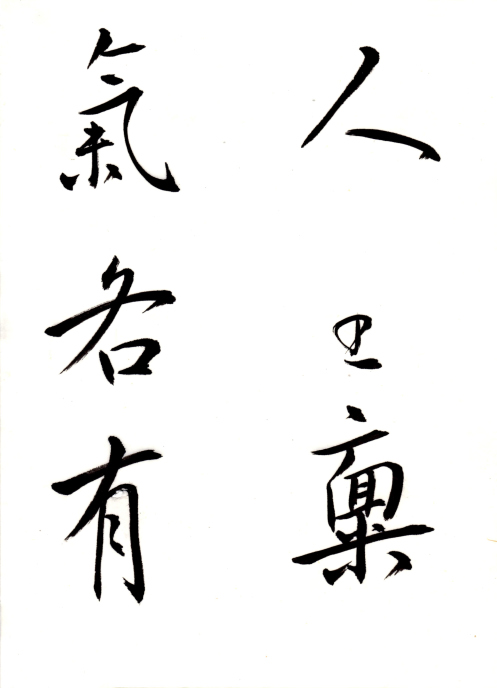 人之稟
氣各有